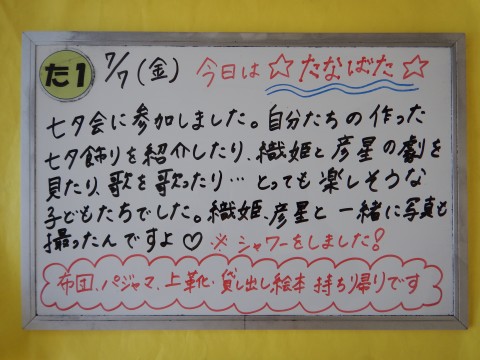 た1 7/7(金) 今日は☆たなばた☆
七夕会に参加しました。自分たちの作った
七夕飾りを紹介したり、織姫と彦星の劇を
見たり、歌を歌ったり…とっても楽しそうな
子どもたちでした。織姫、彦星と一緒に写真も
撮ったんですよ♡ ※シャワーをしました!
布団、パジャマ、上靴、貸し出し絵本 持ち帰りです